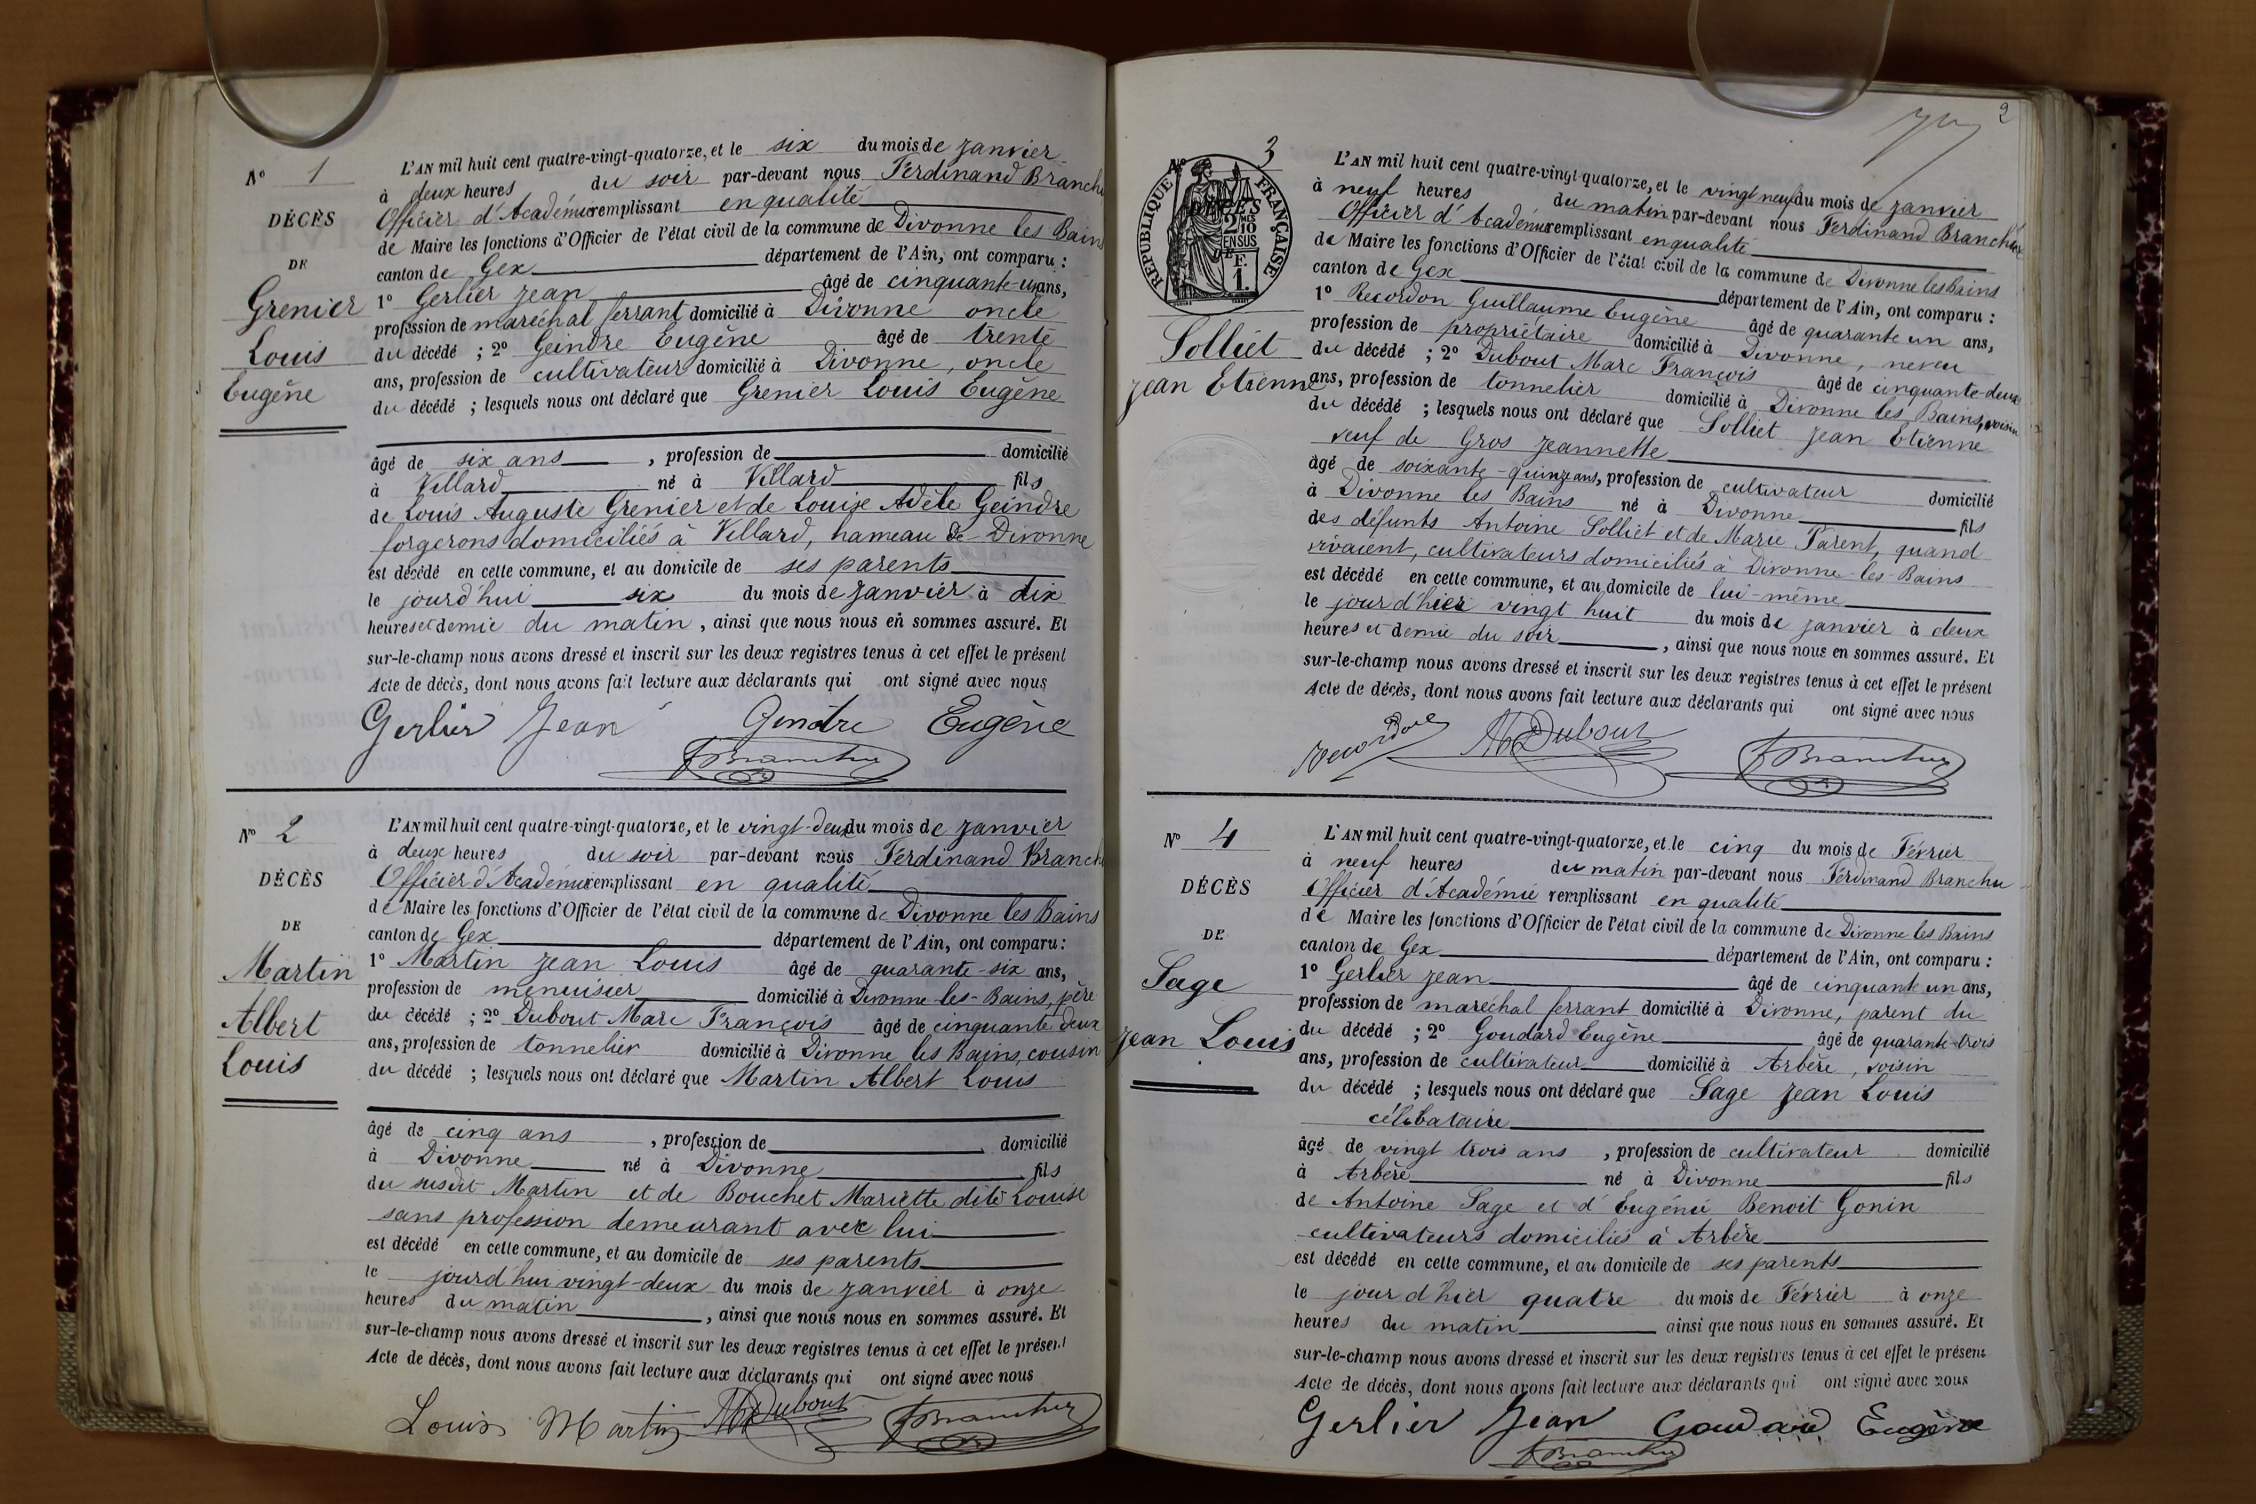 Nº 1
DÉCÈS
DE
Grenier
Louis
Eugène
L'AN mil huit cent quatre-vingt-quatorze, et le six du mois de janvier
à deux heures du soir par-devant nous Ferdinand Branchu
Officier d'Académie remplissant en qualité
de Maire les fonctions d'Officier de l'état civil de la commune de Divonne les Bains
canton de Gex département de l'Ain, ont comparu :
1º Gerlier Jean âgé de cinquante-un ans,
profession de maréchal ferrant domicilié à Divonne oncle
du décédé ; 2º Geindre Eugène âgé de trente
ans, profession de cultivateur domicilié à Divonne, oncle
du décédé ; lesquels nous ont déclaré que Grenier Louis Eugène
âgé de six ans , profession de domicilié
à Villard né à Villard fils
de Louis Auguste Grenier et de Louise Adèle Geindre
forgerons domiciliés à Villard, hameau de Divonne
est décédé en cette commune, et au domicile de ses parents
le jourd'hui six du mois de janvier à dix
heures et demie du matin , ainsi que nous nous en sommes assuré. Et
sur-le-champ nous avons dressé et inscrit sur les deux registres tenus à cet effet le présent
Acte de décès, dont nous avons fait lecture aux déclarants qui ont signé avec nous
Gerlier Jean Gendre Eugène
FBranchu
Nº 2
DÉCÈS
DE
Martin
Albert
Louis
L'AN mil huit cent quatre-vingt-quatorze, et le vingt-deux du mois de janvier
à deux heures du soir par-devant nous Ferdinand Branch
Officier d'Académie remplissant en qualité
de Maire les fonctions d'Officier de l'état civil de la commune de Divonne les Bains
canton de Gex département de l'Ain, ont comparu :
1º Martin Jean Louis âgé de quarante-six ans,
profession de menuisier domicilié à Divonne-les-Bains, père
du décédé ; 2º Dubout Marc François âgé de cinquante deux
ans, profession de tonnelier domicilié à Divonne les Bains, cousin
du décédé ; lesquels nous ont déclaré que Martin Albert Louis
âgé de cinq ans , profession de domicilié
à Divonne né à Divonne fils
du susdit Martin et de Bouchet Mariette dite Louise
sans profession demeurant avec lui
est décédé en cette commune, et au domicile de ses parents
le jourd'hui vingt-deux du mois de janvier à onze
heures du matin , ainsi que nous nous en sommes assuré. Et
sur-le-champ nous avons dressé et inscrit sur les deux registres tenus à cet effet le présent
Acte de décès, dont nous avons fait lecture aux déclarants qui ont signé avec nous
Louis Martin MDubout FBranchu
2
Nº 3
RÉPUBLIQUE FRANÇAISE
2 10
EN SUS
1 F.
Solliet
Jean Etienne
L'AN mil huit cent quatre-vingt-quatorze, et le vingt neuf du mois de janvier
à neuf heures du matin par-devant nous Ferdinand Branchu
Officier d'Académie remplissant en qualité
de Maire les fonctions d'Officier de l'état civil de la commune de Divonne les Bains
canton de Gex département de l'Ain, ont comparu :
1º Recordon Guillaume Eugène âgé de quarante un ans,
profession de propriétaire domicilié à Divonne, neveu
du décédé ; 2º Dubout Marc François âgé de cinquante-deux
ans, profession de tonnelier domicilié à Divonne les Bains, voisin
du décédé ; lesquels nous ont déclaré que Solliet Jean Etienne
veuf de Gros Jeannette
âgé de soixante-quinze ans, profession de cultivateur domicilié
à Divonne les Bains né à Divonne fils
des défunts Antoine Solliet et de Marie Parent, quand
vivaient, cultivateurs domiciliés à Divonne-les-Bains
est décédé en cette commune, et au domicile de lui-même
le jour d'hier vingt huit du mois de janvier à deux
heures et demie du soir , ainsi que nous nous en sommes assuré. Et
sur-le-champ nous avons dressé et inscrit sur les deux registres tenus à cet effet le présent
Acte de décès, dont nous avons fait lecture aux déclarants qui ont signé avec nous
Recordon MDubout FBranchu
Nº 4
DÉCÈS
DE
Sage
Jean Louis
L'AN mil huit cent quatre-vingt-quatorze, et le cinq du mois de Février
à neuf heures du matin par-devant nous Ferdinand Branchu
Officier d'Académie remplissant en qualité
de Maire les fonctions d'Officier de l'état civil de la commune de Divonne les Bains
canton de Gex département de l'Ain, ont comparu :
1º Gerlier Jean âgé de cinquante un ans,
profession de maréchal ferrant domicilié à Divonne, parent du
du décédé ; 2º Goudard Eugène âgé de quarante-trois
ans, profession de cultivateur domicilié à Arbère, voisin
du décédé ; lesquels nous ont déclaré que Sage Jean Louis
célibataire
âgé de vingt trois ans , profession de cultivateur domicilié
à Arbère né à Divonne fils
de Antoine Sage et d'Eugénie Benoit Gonin
cultivateurs domiciliés à Arbère
est décédé en cette commune, et au domicile de ses parents
le jour d'hier quatre du mois de Février à onze
heures du matin ainsi que nous nous en sommes assuré. Et
sur-le-champ nous avons dressé et inscrit sur les deux registres tenus à cet effet le présent
Acte de décès, dont nous avons fait lecture aux déclarants qui ont signé avec nous
Gerlier Jean Goudard Eugène
FBranchu